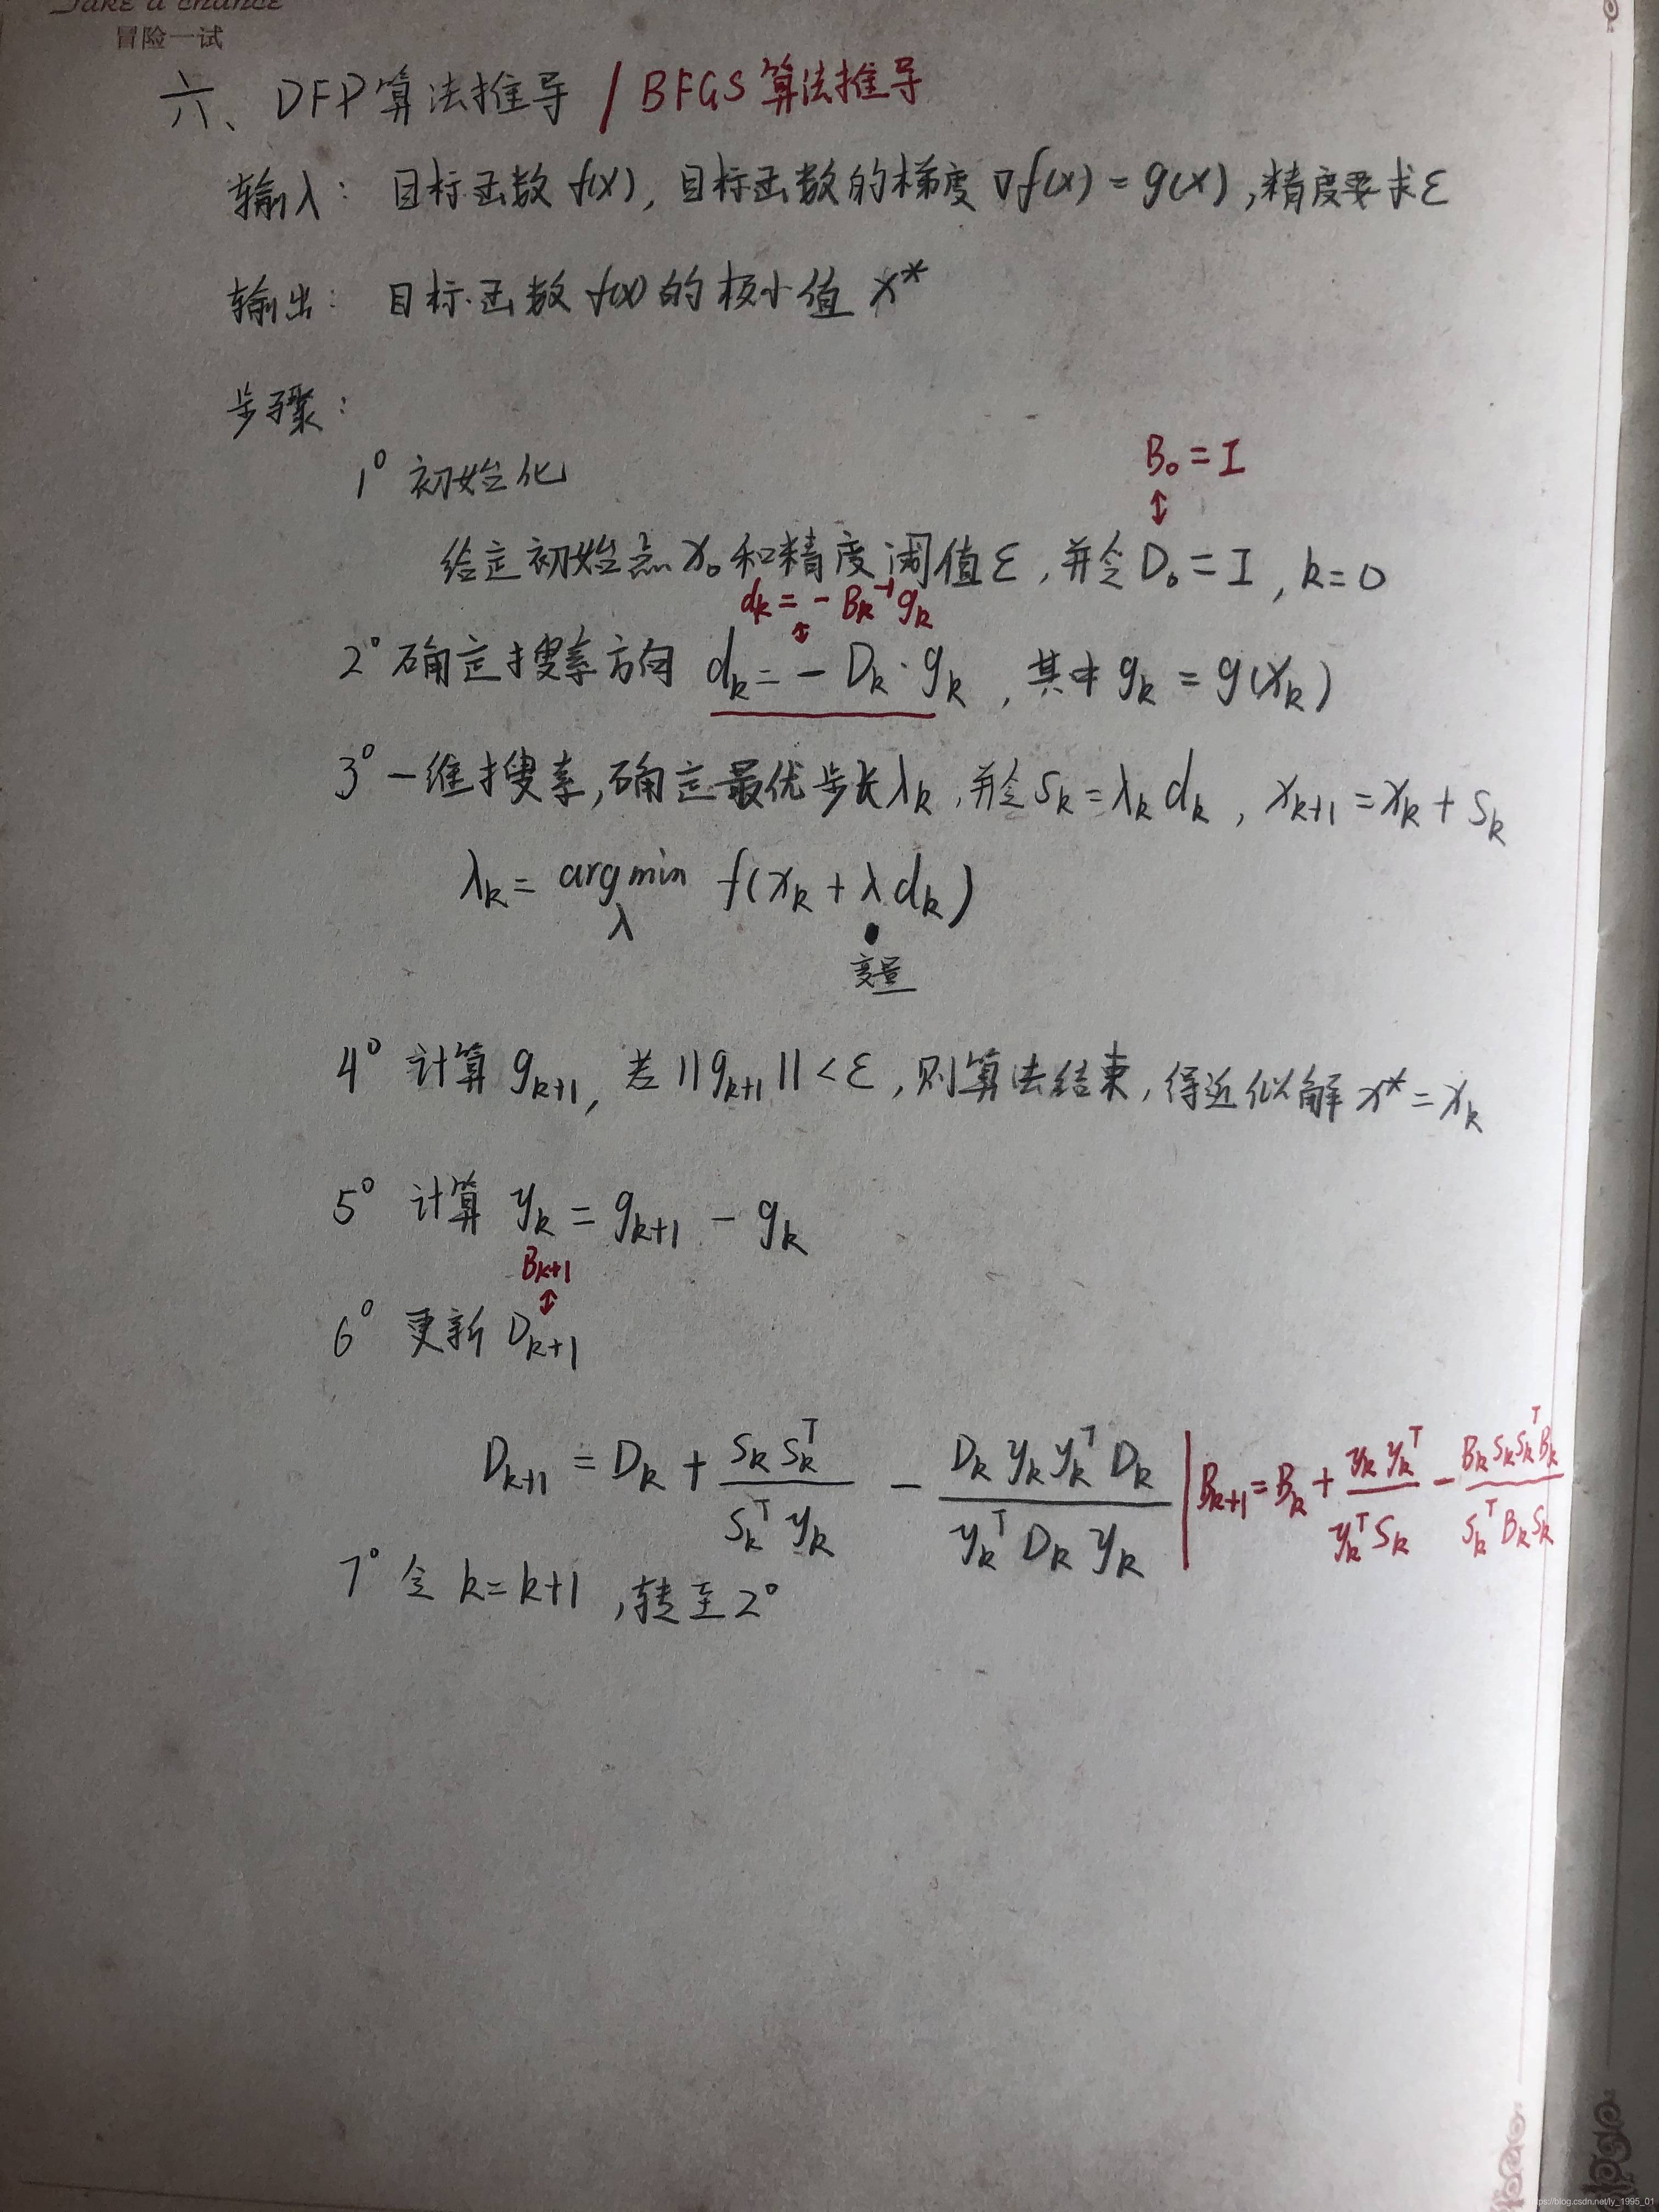 Take a chance
冒险一试
六、DFP算法推导 / BFGS算法推导
输入: 目标函数 f(x), 目标函数的梯度 ∇f(x) = g(x), 精度要求ε
输出: 目标函数 f(x) 的极小值 x*
步骤:
1° 初始化
B₀ = I
↕
给定初始点 x₀ 和精度阈值ε, 并令 D₀ = I, k=0
dₖ = - Bₖ⁻¹ gₖ
↕
2° 确定搜索方向 dₖ = - Dₖ · gₖ, 其中 gₖ = g(xₖ)
3° 一维搜索, 确定最优步长λₖ, 并令 sₖ = λₖ dₖ, xₖ₊₁ = xₖ + sₖ
λₖ = arg min_λ f(xₖ + λ dₖ)
变量
4° 计算 gₖ₊₁, 若 ||gₖ₊₁|| < ε, 则算法结束, 得近似解 x* = xₖ
5° 计算 yₖ = gₖ₊₁ - gₖ
Bₖ₊₁
↕
6° 更新 Dₖ₊₁
Dₖ₊₁ = Dₖ + (sₖ sₖᵀ)/(sₖᵀ yₖ) - (Dₖ yₖ yₖᵀ Dₖ)/(yₖᵀ Dₖ yₖ) | Bₖ₊₁ = Bₖ + (yₖ yₖᵀ)/(yₖᵀ sₖ) - (Bₖ sₖ sₖᵀ Bₖ)/(sₖᵀ Bₖ sₖ)
7° 令 k = k+1, 转至2°
https://blog.csdn.net/ly_1995_01